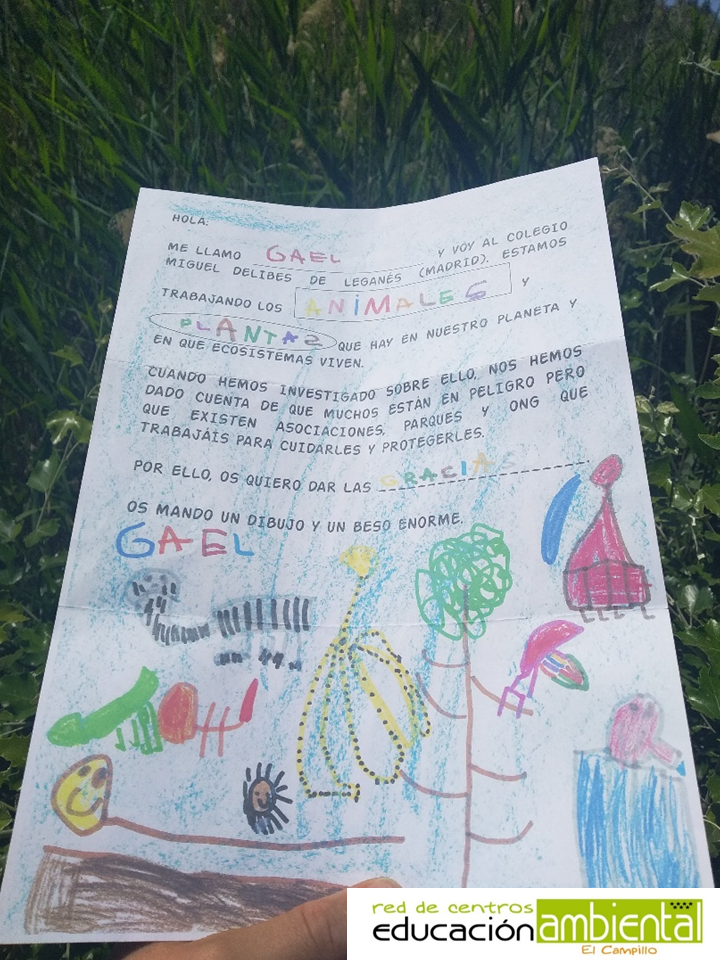 HOLA:
ME LLAMO GAEL Y VOY AL COLEGIO
MIGUEL DELIBES DE LEGANÉS (MADRID). ESTAMOS
TRABAJANDO LOS ANIMALES Y
PLANTAS QUE HAY EN NUESTRO PLANETA Y
EN QUE ECOSISTEMAS VIVEN.
CUANDO HEMOS INVESTIGADO SOBRE ELLO, NOS HEMOS
DADO CUENTA DE QUE MUCHOS ESTÁN EN PELIGRO PERO
QUE EXISTEN ASOCIACIONES, PARQUES Y ONG QUE
TRABAJÁIS PARA CUIDARLES Y PROTEGERLES.
POR ELLO, OS QUIERO DAR LAS GRACIAS
OS MANDO UN DIBUJO Y UN BESO ENORME.
GAEL
red de centros
educación ambiental
El Campillo